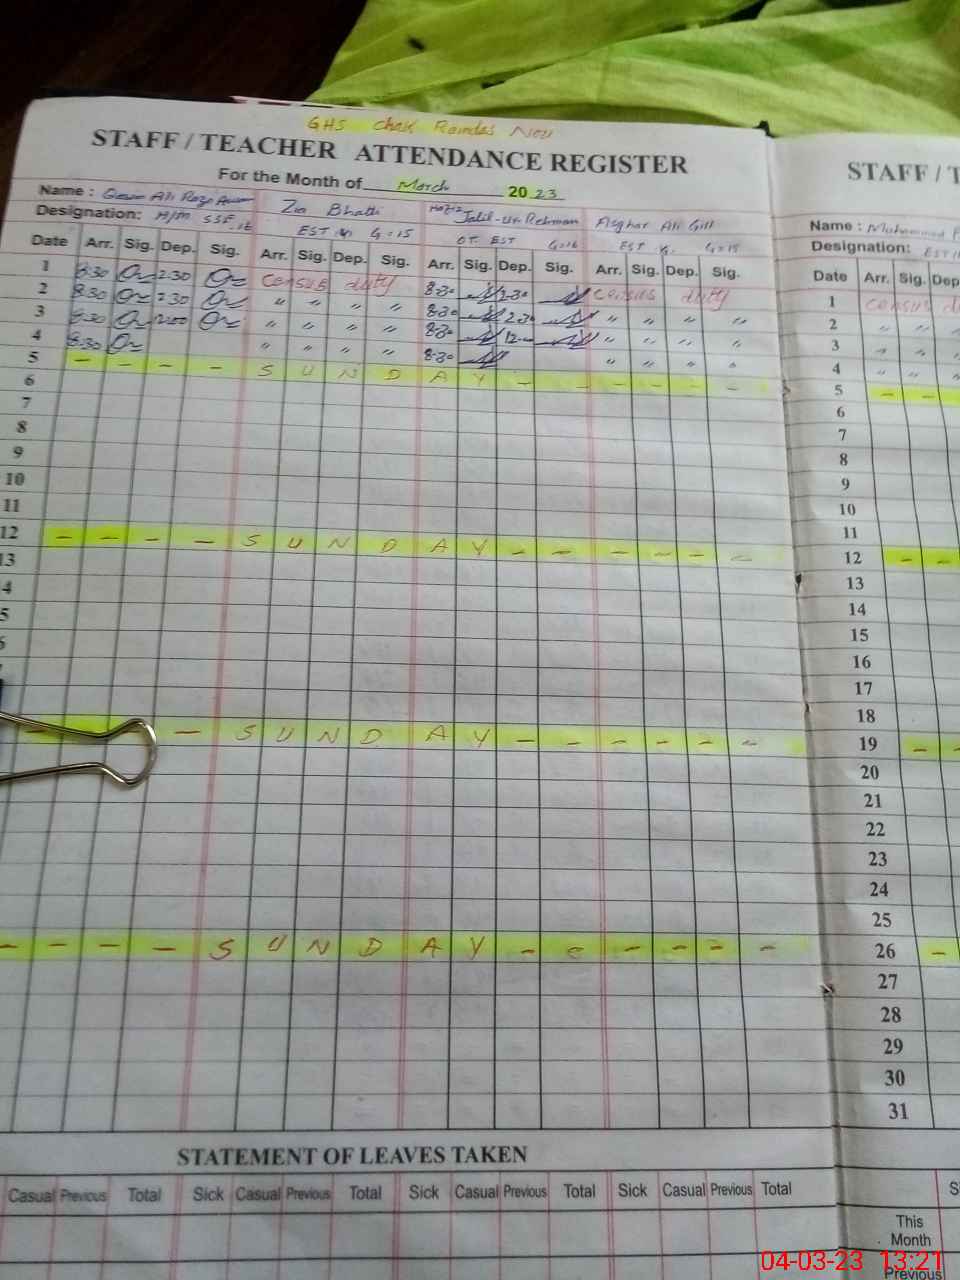 GHS Chak Ramdas Nou
STAFF / TEACHER ATTENDANCE REGISTER
For the Month of March 2023
Name : Ali Raza Zia Bhatti Hafiz Jalil-Ur-Rehman Asghar Ali Gill
Designation: H/M SSE EST G=15 OT EST G=16 EST G=15
Date Arr. Sig. Dep. Sig. Arr. Sig. Dep. Sig. Arr. Sig. Dep. Sig. Arr. Sig. Dep. Sig.
1 8:30 2:30 census duty 8:30 2:30 census duty
2 8:30 2:30 " " " " 8:30 2:30 " " " "
3 8:30 12:00 " " " " 8:30 12:00 " " " "
4 8:30 " " " " 8:30 " " " "
5 - - - - S U N D A Y - - - - - -
6
7
8
9
10
11
12 - - - - S U N D A Y - - - - - -
13
14
- - S U N D A Y - - - - - -
- - - - S U N D A Y - - - - - -
STATEMENT OF LEAVES TAKEN
Casual Previous Total Sick Casual Previous Total Sick Casual Previous Total Sick Casual Previous Total
STAFF / T
Name : Muhammad
Designation: EST
Date Arr. Sig. Dep
1 census d
2 " "
3 " "
4 " " "
5 - -
6
7
8
9
10
11
12 - -
13
14
15
16
17
18
19 - -
20
21
22
23
24
25
26 -
27
28
29
30
31
This
Month
Previous
04-03-23 13:21